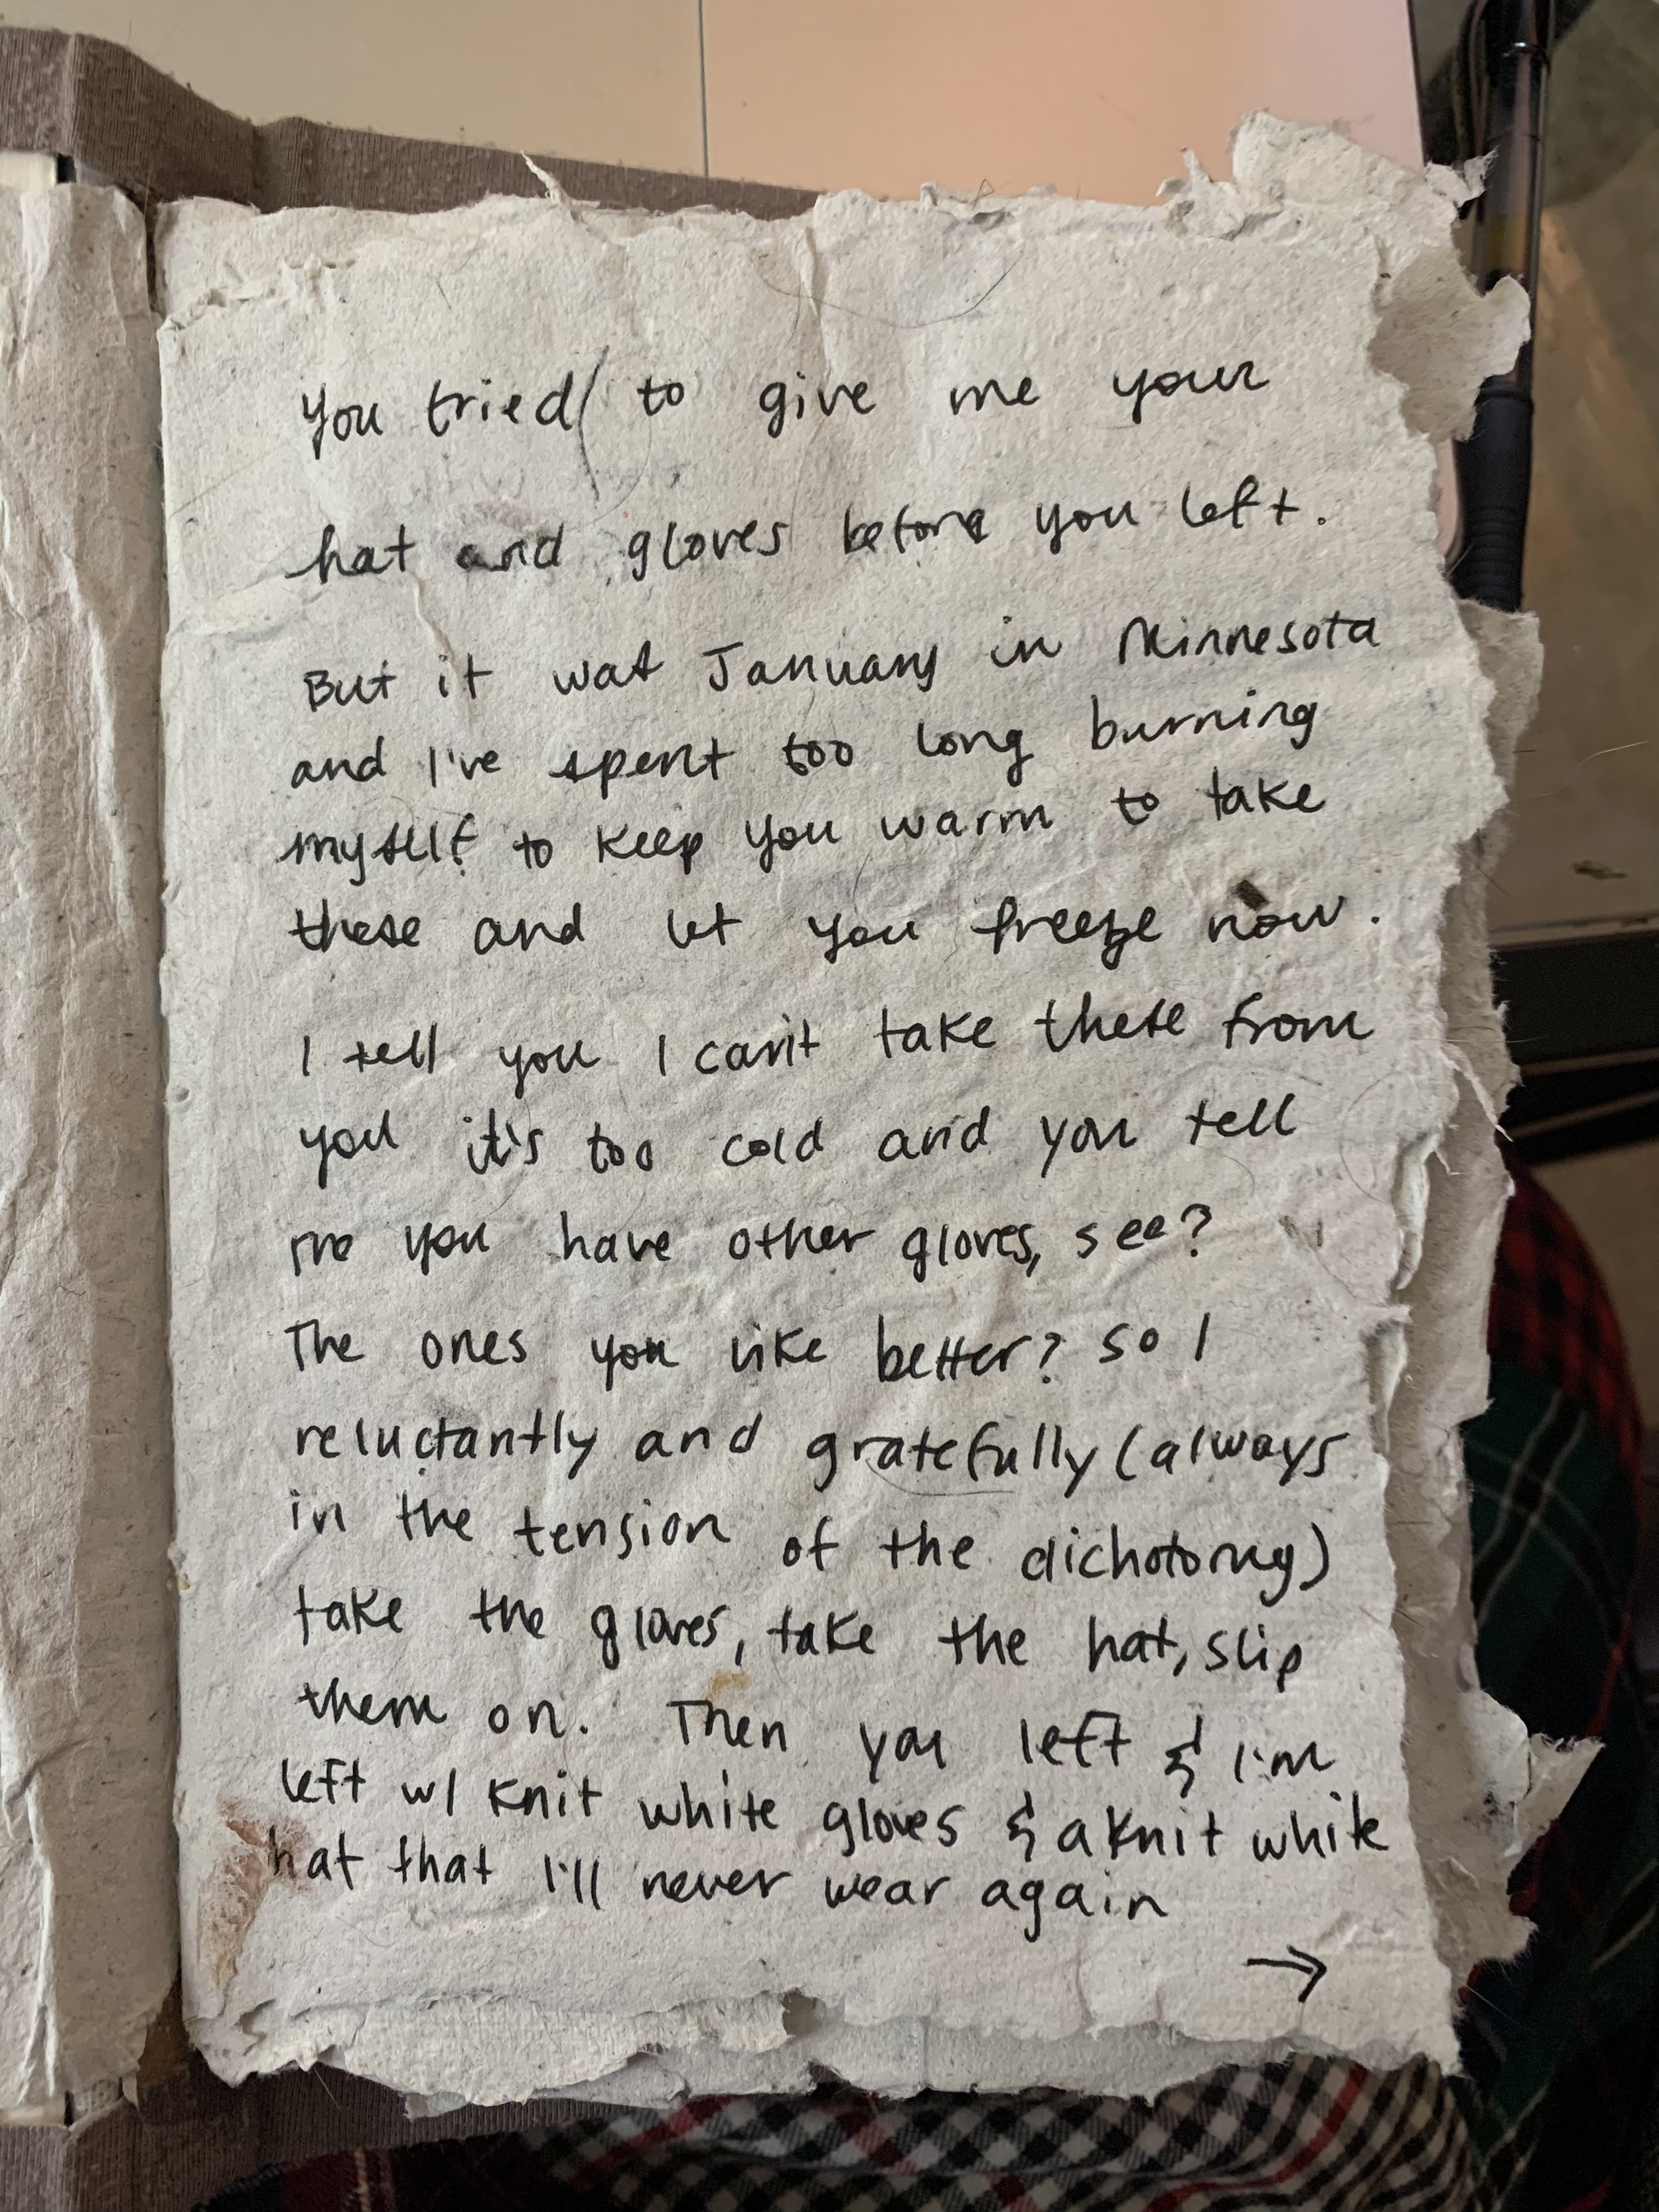 You tried to give me your
hat and gloves before you left.
But it was January in Minnesota
and I've spent too long burning
myself to keep you warm to take
these and let you freeze now.
I tell you I can't take these from
you it's too cold and you tell
me you have other gloves, see?
The ones you like better? So I
reluctantly and gratefully (always
in the tension of the dichotomy)
take the gloves, take the hat, slip
them on. Then you left & I'm
left w/ knit white gloves & a knit white
hat that I'll never wear again
→